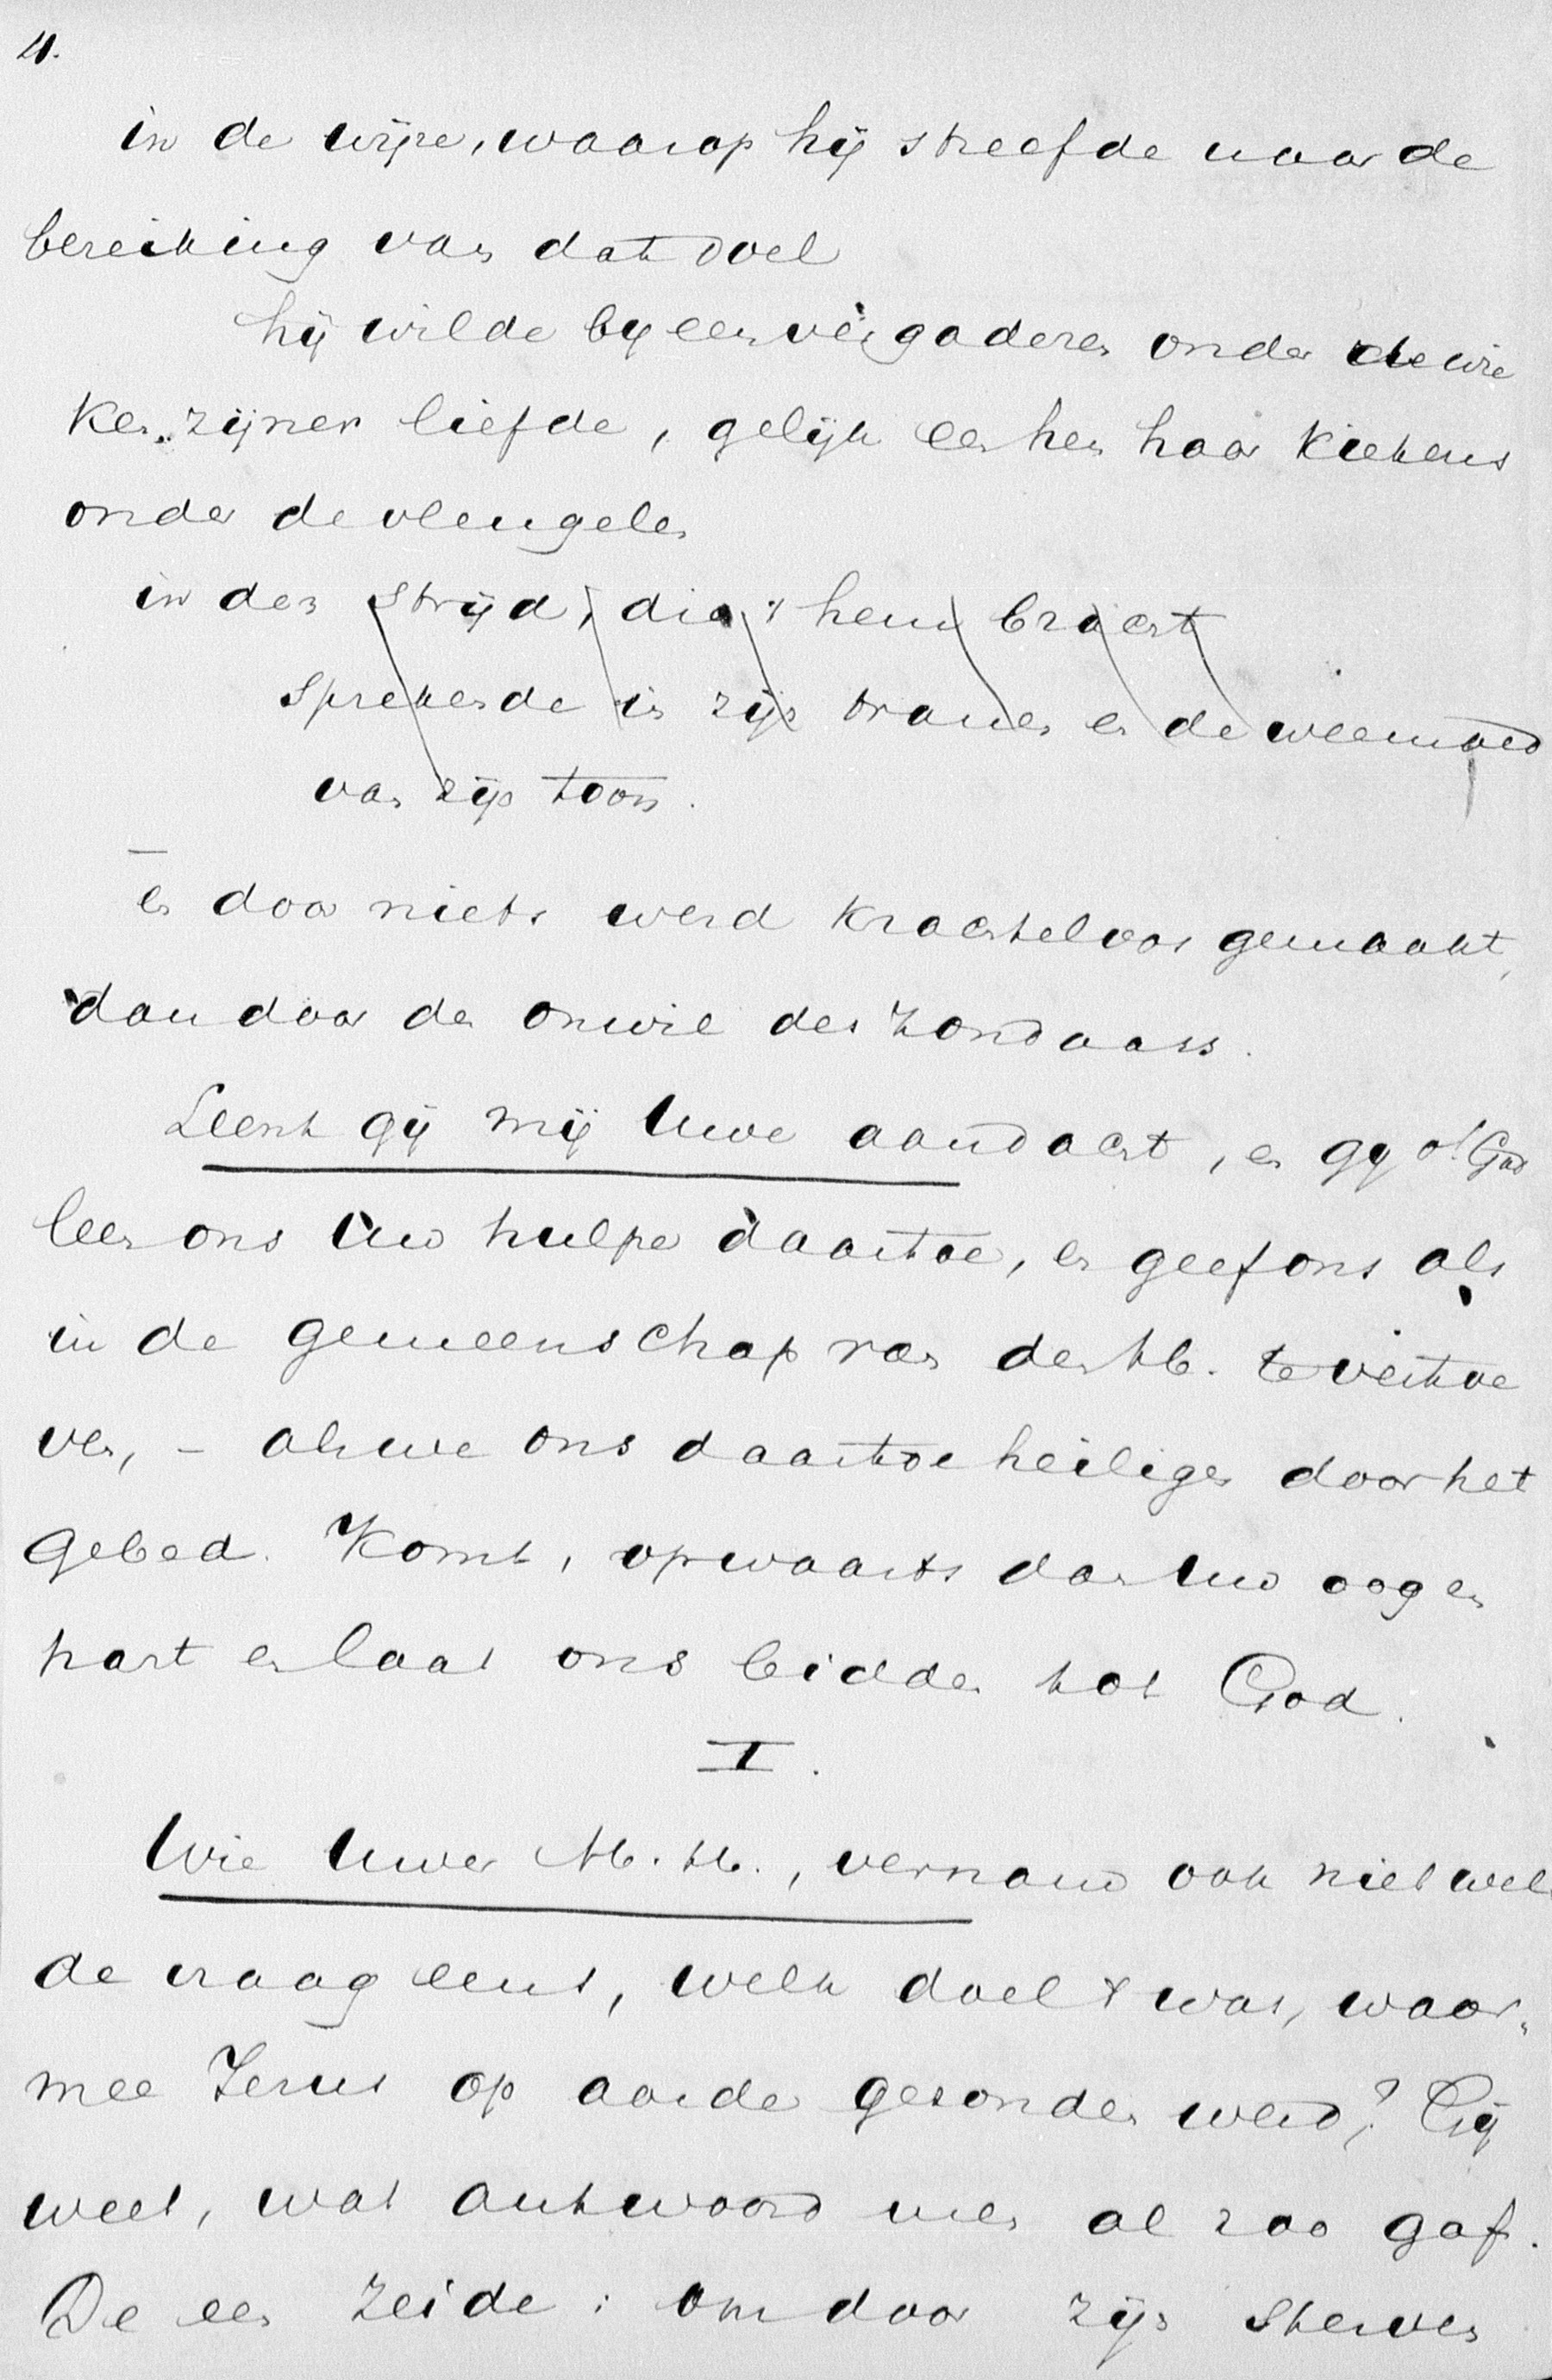 4.
in de wijze, waarop hij streefde naar de
bereiking van dat doel
hij wilde byeenvergaderen onder de wie
ken zijner liefde, gelijk een hen haar kiekens
onder de vleugelen
in den strijd, die 't hem bracht
sprekende in zijn tranen en de weemoed
van zijn toon.
en door niets werd krachteloos gemaakt,
dan door den onwil des zondaars.
Leent gij mij Uwe aandacht, en gy o! God
leen ons Uw hulpe daartoe, en geef ons als
in de gemeenschap van den H. te vertoe
ven, – als we ons daartoe heiligen door het
gebed. Komt, opwaarts dan Uw oog en
hart en laat ons bidden tot God.
I.
Wie Uwer M. H., vernam ook niet wel
de vraag eens, welk doel 't was, waar„
mee Jezus op aarde gezonden werd? Gij
weet, wat antwoord men al zoo gaf.
De een zeide: om door zijn sterven